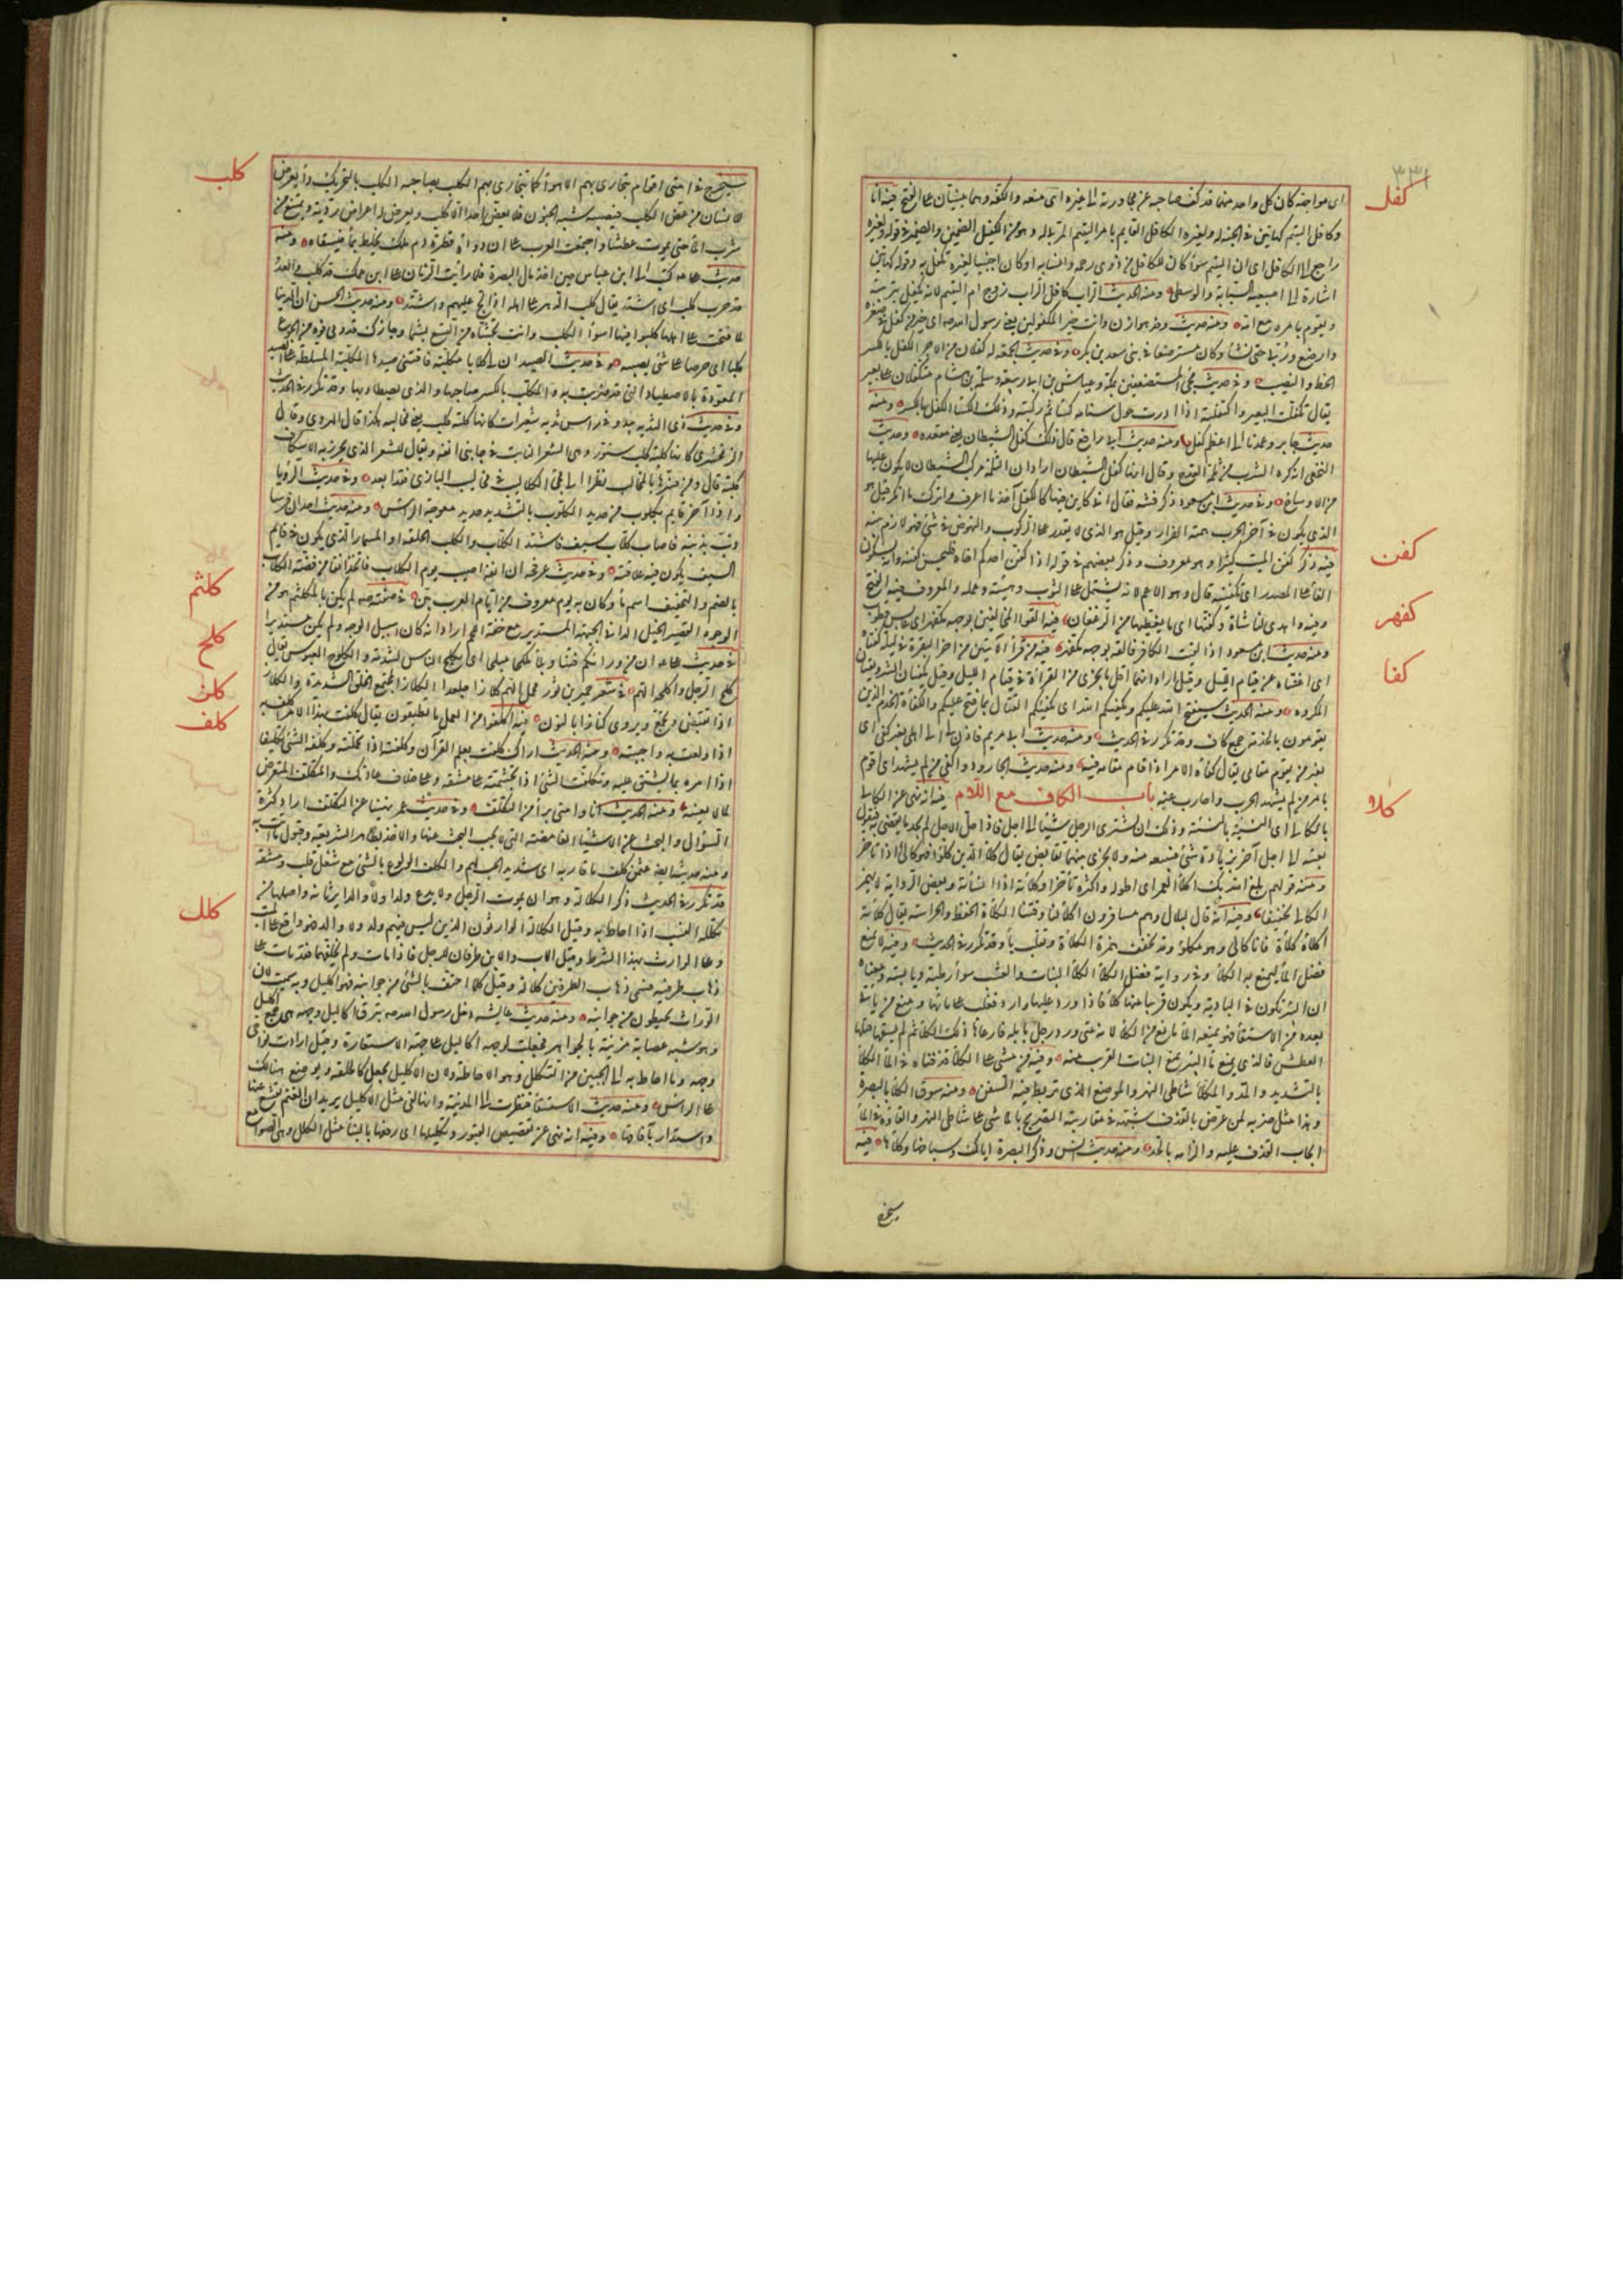 ٣٣١
كفل
اى مواجهة كان كل واحد منهما قد كف صاحبه عن مجاوزته الى غيره اى منعه والكفة وفيه انا
وكافل اليتيم كهاتين فى الجنة له ولغيره الكافل القايم بامر اليتيم المربى له وهو من الكفيل الضمين والضمير فى قوله ولغيره
راجع الى الكافل اى ان اليتيم سوآ كان للكافل من ذوى رحمه وانسابه او كان اجنبيا لغيره تكفل به وقوله كهاتين
اشارة الى اصبعيه السبابة والوسطى ومنه الحديث الراب كافل الراب زوج ام اليتيم لانه يكفل تربيته
ويقوم بامره مع امه ومنه حديث وفد هوازن وانت خير المكفولين يعنى رسول الله صه اى خير من كفل فى صغره
وارضع وربى حتى نشأ وكان مسترضعا فى بنى سعد بن بكر وفى حديث الجمعة له كفلان من الاجر الكفل بالكسر
الحظ والنصيب وفى حديث مجئ المستضعفين بمكة وعياش بن ابى ربيعة وسلمة بن هشام متكفلان على بعير
يقال تكفلت البعير واكتفلته اذا ادرت حول سنامه كساء ثم ركبته وذلك الكساء الكفل بالكسر ومنه
حديث جابر وعمدنا الى اعظم كفل ومنه حديث ابى رافع قال ذلك كفل الشيطان يعنى مقعده وحديث
النخعى انه كره الشرب من ثلمة القدح وقال انها كفل الشيطان اراد ان الثلمة مركب الشيطان لما يكون عليها
من الاوساخ وفى حديث ابن مسعود ذكر فتنة فقال انى كاين فيها كالكفل آخذ ما اعرف واترك ما انكر قيل هو
الذى يكون فى آخر الحرب همته الفرار وقيل هو الذى لا يقدر على الركوب والنهوض فى شئ فهو لازم بيته
كفن
فيه ذكر كفن الميت كثيرا وهو معروف وذكر بعضهم فى قوله اذا كفن احدكم اخاه فليحسن كفنه وانه بسكون
الفاء على المصدر اى تكفينه قال وهو الاعم لانه يشتمل على الثوب وهيئته وعمله والمعروف فيه الفتح
كفهر
وفيه واهدى لنا شاة وكفنها اى ما يغطيها من الرغفان فيه القوا المخالفين بوجه مكفهر اى عابس قطوب
كفا
ومنه حديث ابن مسعود اذا لقيت الكافر فالقه بوجه مكفهر فيه من قرأ الآيتين من اخر البقرة فى ليلة كفتاه
اى اغنتاه عن قيام الليل وقيل اراد انهما اقل ما يجزى من القرآءة فى قيام الليل وقيل يكفيان الشر ويقيان
المكروه ومنه الحديث سيفتح الله عليكم ويكفيكم الله اى يكفيكم القتال بما فتح عليكم والكفاة الخدم الذين
يقومون بالخدمة جمع كاف وقد تكرر فى الحديث ومنه حديث ابى مريم فاذن لى الى اهلى بغير كفى اى
بغير من يقوم مقامى يقال كفاه الامر اذا قام مقامه فيه ومنه حديث الجارود واكفى من لم يشهد اى اقوم
كلأ
بامر من لم يشهد الحرب واحارب عنه باب الكاف مع اللام فيه انه نهى عن الكالئ
بالكالئ اى النسيئة بالنسيئة وذلك ان يشترى الرجل شيئا الى اجل فاذا حل الاجل لم يجد ما يقضى به فيقول
بعنيه الى اجل آخر بزيادة شئ فيبيعه منه ولا يجرى بينهما تقابض يقال كلأ الدين كلوءا فهو كالئ اذا تاخر
ومنه قولهم بلغ الله بك اكلأ العمر اى اطوله واكثره تأخرا وكلأته اذا انسأته وبعض الرواة لا يهمز
الكالى تخفيفا وفيه انه قال لبلال وهم مسافرون اكلأ لنا وقتنا الكلاءة الحفظ والحراسة يقال كلأته
اكلأه كلاءة فانا كالئ وهو مكلوء وقد تخفف همزة الكلاءة وتقلب ياء وقد تكرر فى الحديث وفيه لا يمنع
فضل الماء ليمنع به الكلأ وفى رواية فضل الكلأ الكلأ النبات والعشب سوآ رطبه ويابسه ومعناه
ان البئر تكون فى البادية ويكون قريبا منها كلأ فاذا ورد عليها وارد فغلب على مائها ومنع من ياتى
بعده من الاستقاء فهو بمنعه الماء مانع من الكلأ لانه متى ورد رجل بابله فارعاها ذلك الكلأ ثم لم يسقها قتلها
العطش فالذى يمنع ماء البئر يمنع النبات القريب منه وفيه من مشى على الكلاء قذفناه فى الماء الكلاء
بالتشديد والمد والمكلأ شاطئ النهر والموضع الذى تربط فيه السفن ومنه سوق الكلاء بالبصرة
وهذا مثل ضربه لمن عرض بالقذف شبهه فى مقاربته التصريح بالماشى على شاطئ النهر والقاؤه فى الماء
ايجاب القذف عليه والزامه بالحد ومنه حديث انس وذكر البصرة اياك وسباخها وكلاءها فيه
سيخرج
كلب
سيخرج فى امتى اقوام تتجارى بهم الاهواء كما يتجارى الكلب بصاحبه الكلب بالتحريك داء يعرض
للانسان من عض الكلب الكلب فيصيبه شبه الجنون فلا يعض احدا الا كلب ويعرض له اعراض ردية ويمتنع من
شرب الماء حتى يموت عطشا واجمعت العرب على ان دوآءه قطرة دم ملك يخلط بماء فيسقاه ومنه
حديث على كتب الى ابن عباس حين اخذ مال البصرة فلما رأيت الزمان على ابن عمك قد كلب والعدو
قد حرب كلب اى اشتد يقال كلب الدهر على اهله اذا الح عليهم واشتد ومنه حديث الحسن ان الدنيا
لما فتحت على اهلها كلبوا فيها اسوأ الكلب وانت تجشأ من الشبع بشما وجارك قد دمى فوه من الجوع
كلبا اى حرصا على شئ يصيبه وفى حديث الصيد ان لى كلابا مكلبة فافتنى فى صيدها المكلبة المسلطة على الصيد
المعودة بالاصطياد التى قد ضريت به والمكلب بالكسر صاحبها والذى يصطاد بها وقد تكرر فى الحديث
وفى حديث ذى الثدية يبدو فى راس ثديه شعيرات كانها كلبة كلب يعنى مخالبه هكذا قال الهروى وقال
الزمخشرى كانها كلبة كلب او كلبة سنور وهى الشعر النابت فى جانبى انفه ويقال للشعر الذى يخرز به الاسكاف
كلبة قال ومن فسرها بالمخالب نظرا الى مجئ الكلاليب فى مخالب البازى فقد ابعد وفى حديث الرؤيا
واذا آخر قايم بكلوب من حديد الكلوب بالتشديد حديدة معوجة الراس ومنه حديث احد ان فرسا
ذب بذنبه فاصاب كلاب سيف فاستله الكلاب والكلب الحلقة او المسمار الذى يكون فى قايم
السيف يكون فيه علاقته وفى حديث عرفجة ان انفه اصيب يوم الكلاب فاتخذ انفا من فضة الكلاب
كلثم
بالضم والتخفيف اسم ماء وكان به يوم معروف من ايام العرب فى صفته صه لم يكن بالمكلثم هو من
كلح
الوجوه القصير الحنك الدانى الجبهة المستدير مع خفة اللحم اراد انه كان اسيل الوجه ولم يكن مستديرا
فى حديث على ان من ورائكم فتنا وبلاء مكلحا مبلحا اى يكلح الناس لشدته والكلوح العبوس يقال
كلز
كلح الرجل واكلحه الهم فى شعر حميد بن ثور فحمل الهم كلازا جلعدا الكلاز المجتمع الخلق الشديده واكلاز
كلف
اذا انقبض وتجمع ويروى كنازا بالنون فيه اكلفوا من العمل ما تطيقون يقال كلفت بهذا الامر اكلف به
اذا ولعت به واحببته ومنه الحديث اراك كلفت بعلم القرآن وكلفته اذا تحملته وكلفه الشئ تكليفا
اذا امره بما يشق عليه وتكلفت الشئ اذا تجشمته على مشقة وعلى خلاف عادتك والمتكلف المتعرض
لما لا يعنيه ومنه الحديث انا وامتى برآء من التكلف وفى حديث عمر نهينا عن التكلف اراد كثرة
السؤال والبحث عن الاشياء الغامضة التى لا يجب البحث عنها والاخذ بظاهر الشريعة وقبول ما اتت به
ومنه حديثه ايضا عثمن كلف باقاربه اى شديد الحب لهم والكلف الولوع بالشئ مع شغل قلب ومشقة
كلل
قد تكرر فى الحديث ذكر الكلالة وهو ان يموت الرجل ولا يدع ولدا ولا والدا يرثانه واصلها من
تكلله النسب اذا احاط به وقيل الكلالة الوارثون الذين ليس فيهم ولد ولا والد فهو واقع على الميت
وعلى الوارث بهذا الشرط وقيل الاب والابن طرفان للرجل فاذا مات ولم يخلفهما فقد مات عن
ذهاب طرفيه فسمى ذهاب الطرفين كلالة وقيل كلما احتف بالشئ من جوانبه فهو اكليل وبه سميت لان
الوراث يحيطون به من جوانبه ومنه حديث عايشة دخل رسول الله صه تبرق اكاليل وجهه هى جمع اكليل
وهو شبه عصابة مزينة بالجواهر فجعلت لوجهه اكاليل على جهة الاستعارة وقيل ارادت نواحى
وجهه وما احاط به الى الجبين من التكلل وهو الاحاطة ولان الاكليل يجعل كالحلقة ويوضع هنالك
على الراس ومنه حديث الاستسقاء فنظرت الى المدينة وانها لفى مثل الاكليل يريد ان الغيم تقشع عنها
واستدار بآفاقها وفيه انه نهى عن تقصيص القبور وتكليلها اى رفعها بالبناء مثل الكلل وهى الصوامع